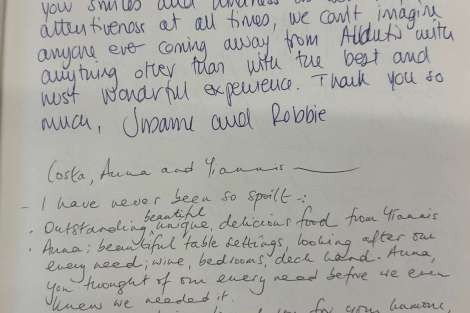 you smiles and kindness
attentiveness at all times, we can't imagine
anyone ever coming away from with
anything other than with the best and
most wonderful experience. Thank you so
much, and Robbie
Costa, Anna and Yiannis
- I have never been so spoilt:
beautiful
· Outstanding, unique, delicious food from Yiannis
· Anna; beautiful table settings, looking after our
every need; wine, bedrooms, deck hand. Anna,
you thought of our every need before we even
knew we needed it.
for your humour,